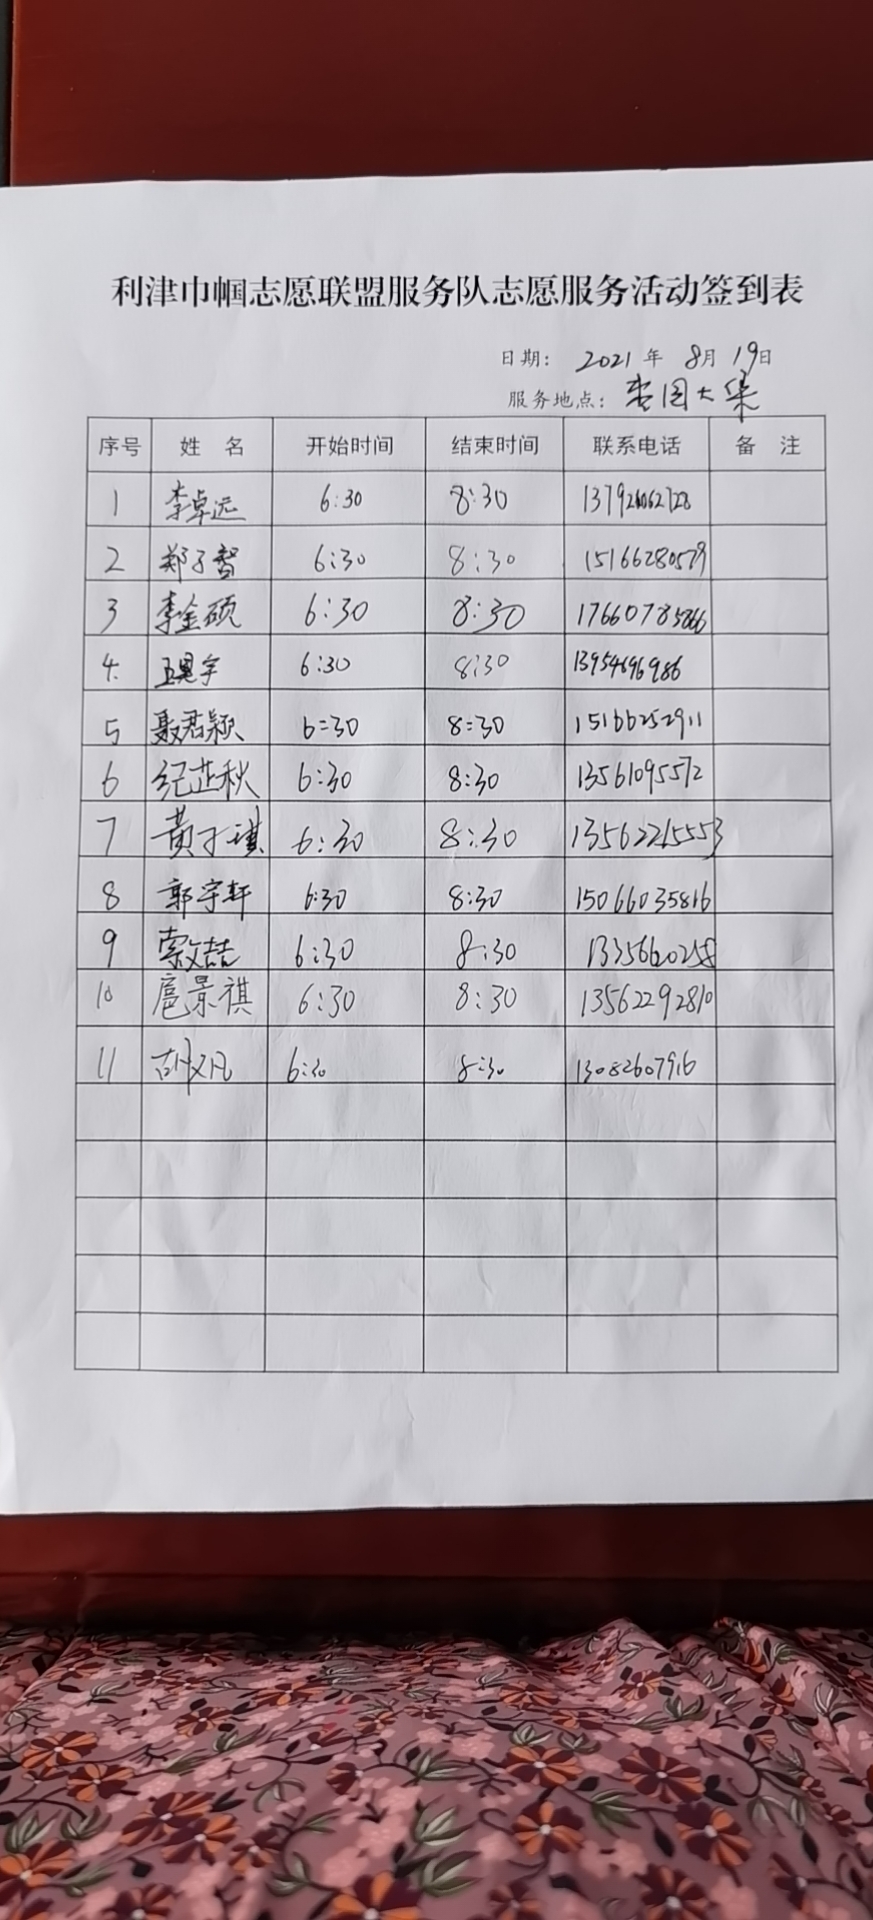 利津巾帼志愿联盟服务队志愿服务活动签到表
日期: 2021 年 8月 19日
服务地点: 枣园大集
序号 姓 名 开始时间 结束时间 联系电话 备 注
1 李卓远 6:30 8:30
2 郑子智 6:30 8:30 15166280579
3 李金硕 6:30 8:30 17660785866
4. 王昊宇 6:30 8:30 13954696986
5 聂君颖 6:30 8:30 15166252911
6 纪芷秋 6:30 8:30 13561095572
7 黄子琪 6:30 8:30 13562215553
8 郭宇轩 6:30 8:30 15066035816
9 索喆 6:30 8:30
10 扈景祺 6:30 8:30 13562292810
11 胡文凡 6:30 8:30 13082607916